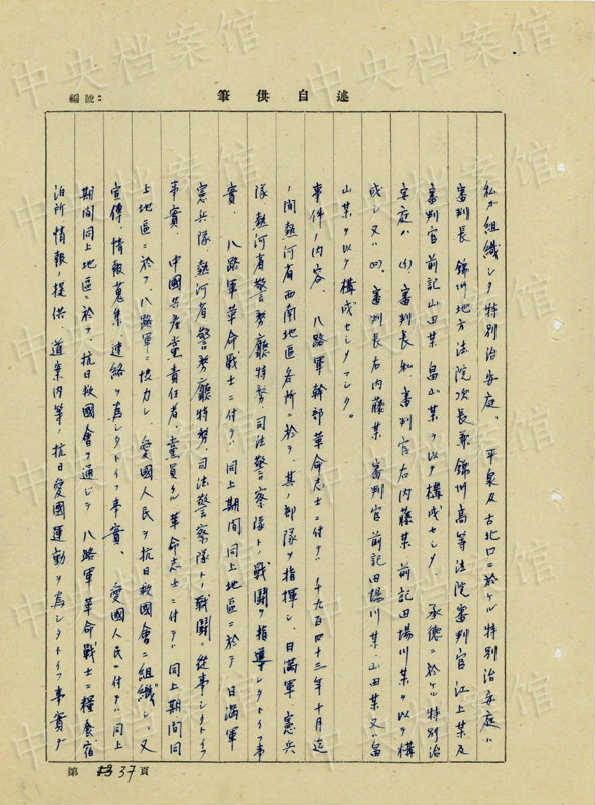 編號：
筆供自述
私カ組織シタ特別治安庭。平泉及古北口ニ於ケル特別治安庭ハ
審判長 錦州地方法院次長兼錦州高等法院審判官 江上某及
審判官前記山田某、畠山某ヲ以テ構成セシメ、承德ニ於ケル特別治
安庭ハ(1)、審判長私、審判官右内藤某、前記田場川某ヲ以テ構
成シ又ハ(四)、審判長右内藤某、審判官前記田場川某、山田某又ハ畠
山某ヲ以テ構成セシメマシタ。
事件ノ内容、八路軍幹部革命志士ニ付テハ千九百四十三年十月迄
ノ間熱河省西南地區各所ニ於テ、其ノ部隊ヲ指揮シ、日滿軍憲兵
隊熱河省警務廳特務、司法警察隊トノ戰鬪ヲ指導シタトイフ事
實、八路軍革命戰士ニ付テハ、同上期間同上地區ニ於テ日滿軍
憲兵隊熱河省警務廳特務、司法警察隊トノ戰鬪ニ從事シタトイフ
事實、中國共產黨責任者、黨員タル革命志士ニ付テハ同上期間同
上地區ニ於テ八路軍ニ協力シ、愛國人民ヲ抗日救國會ニ組織シ、又
宣傳、情報蒐集、連絡ヲ爲シタトイフ事實、愛國人民ニ付テハ同上
期間同上地區ニ於テ、抗日救國會ヲ通シテ八路軍革命戰士ニ糧食宿
泊所情報ノ提供、道案内等ノ抗日愛國運動ヲ爲シタトイフ事實デ
第 37 頁
中央档案馆